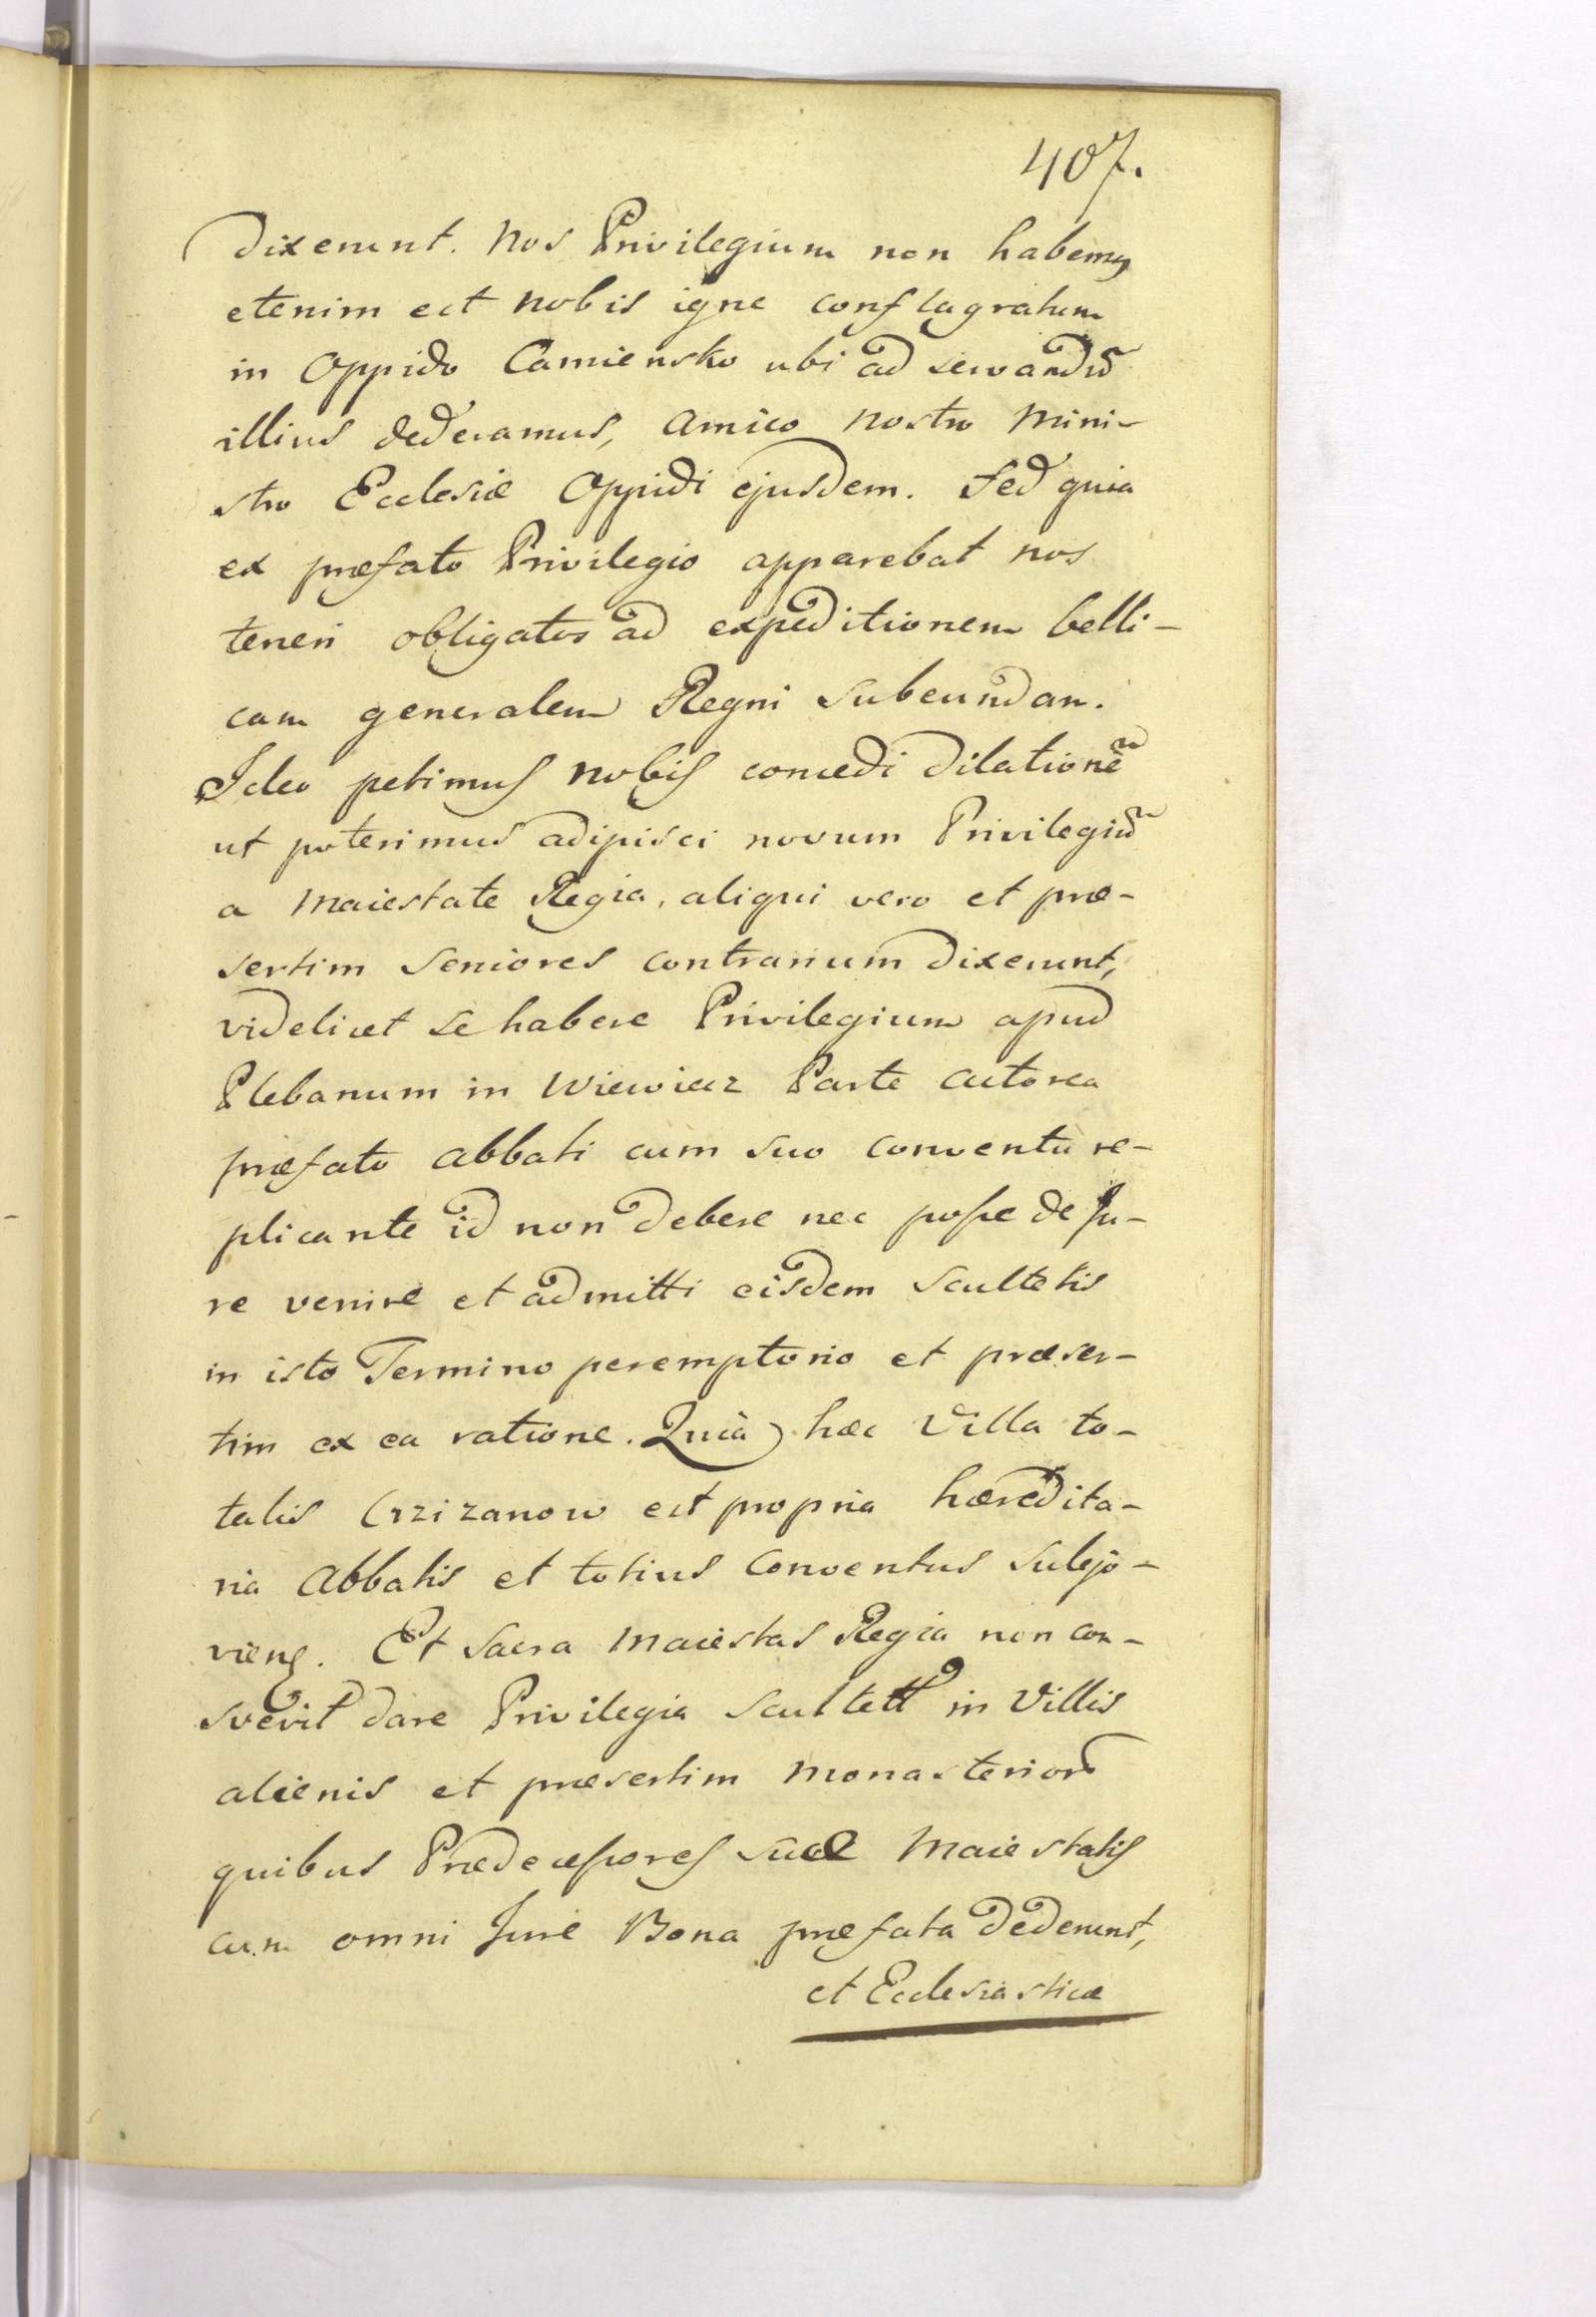 407.
dixerunt. Nos Privilegium non habemus
etenim est nobis igne conflagratum
in Oppido Camiensko ubi ad servandũ
illius dederamus, Amico nostro Mini-
stro Ecclesiæ Oppidi ejusdem. Sed quia
ex præfato Privilegio apparebat nos
teneri obligatos ad expeditionem belli-
cam generalem Regni subeundam.
Ideo petimus nobis concedi dilationẽ
ut poterimus adipisci novum Privilegiũ
a Maiestate Regia, aliqui vero et præ-
sertim Seniores contrarium dixerunt,
videlicet se habere Privilegium apud
Plebanum in Wiewicz Parte actorea
præfato Abbati cum suo conventu re-
plicante id non debere nec posse de Ju-
re venire et admitti eisdem Scultetis
in isto Termino peremptorio et præser-
tim ex ea ratione. Quia hæc Villa to-
talis Crzizanow est propria hæredita-
ria Abbatis et totius Conventus Sulejo-
viens. Et Sacra Maiestas Regia non con-
svevit dare Privilegia Scultett in Villis
alienis et præsertim Monasterior
quibus Prædecessores suæ Maiestatis
cum omni Jure Bona præfata dederunt,
et Ecclesiasticæ